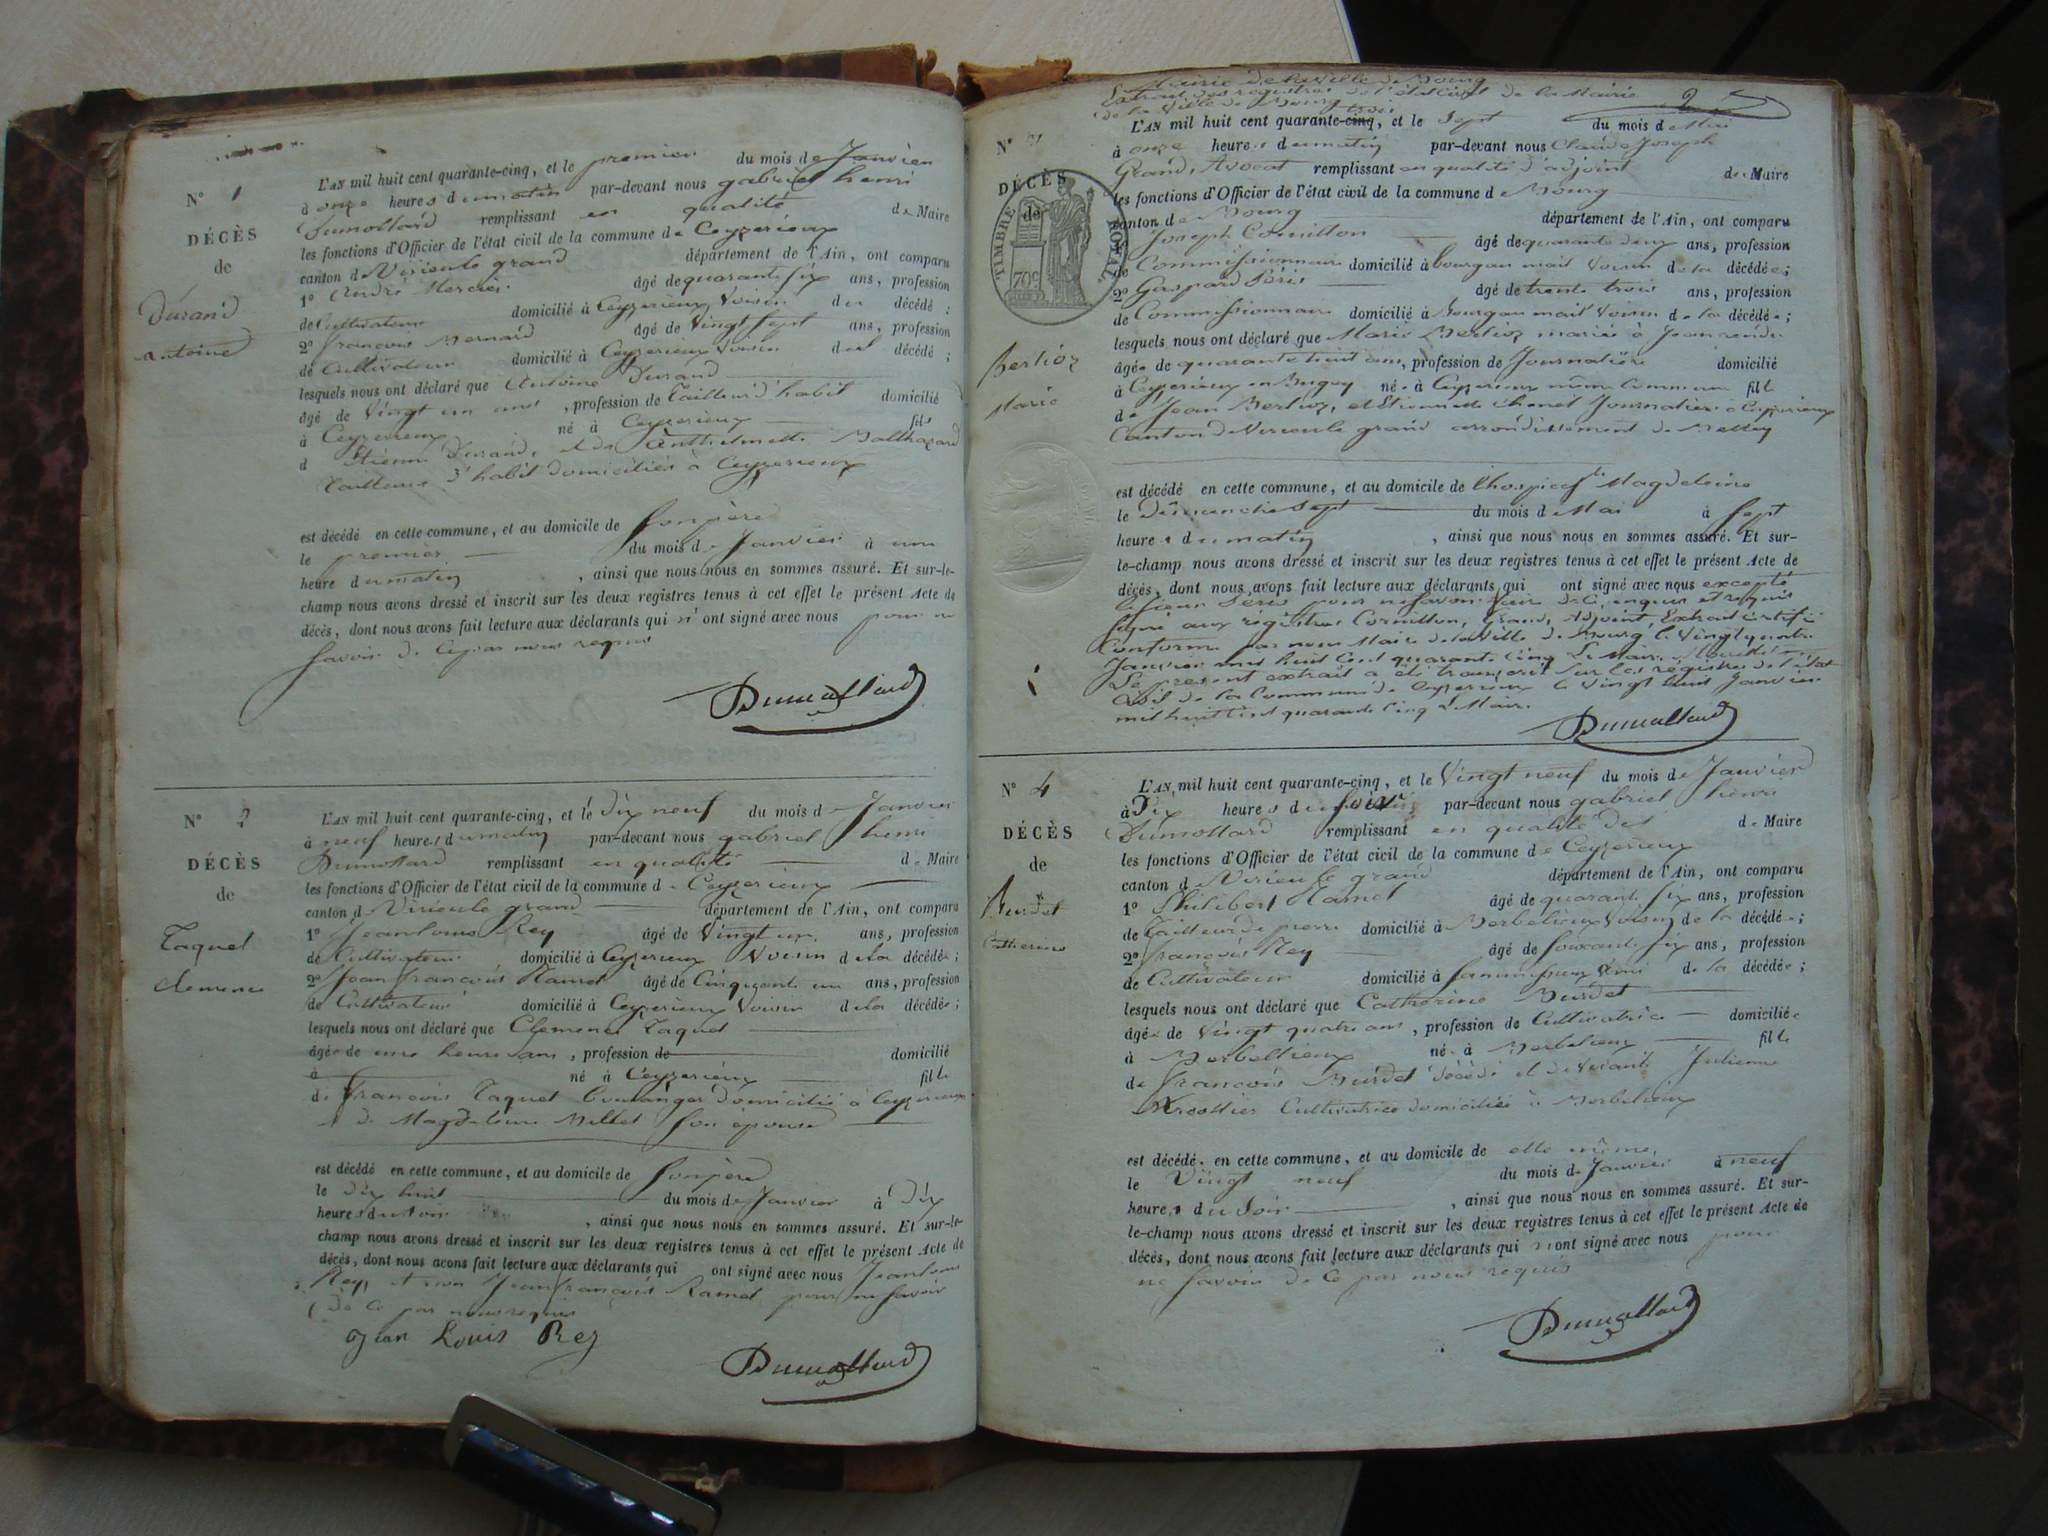 N° 1
DÉCÈS
de
Durand
antoine
L'AN mil huit cent quarante-cinq, et le premier du mois de Janvier
à onze heures du matin par-devant nous gabriel henri
Dumollard remplissant en qualité de Maire
les fonctions d'Officier de l'état civil de la commune de Ceyzerieux
canton de Virieu le grand département de l'Ain, ont comparu
1° André Mercier âgé de quarante six ans, profession
de Cultivateur domicilié à Ceyzerieux Voisin du décédé ;
2° francois Bernard âgé de Vingt sept ans, profession
de Cultivateur domicilié à Ceyzerieux Voisin du décédé ;
lesquels nous ont déclaré que Antoine Durand
âgé de Vingt un ans , profession de Tailleur d'habit domicilié
à Ceyzerieux né à Ceyzerieux fils
d Etienne Durand, et de Anthelmette Balthazard
Tailleur d'habit domiciliés à Ceyzerieux
est décédé en cette commune, et au domicile de Son père
le premier du mois de Janvier à une
heure du matin , ainsi que nous nous en sommes assuré. Et sur-le-
champ nous avons dressé et inscrit sur les deux registres tenus à cet effet le présent Acte de
décès, dont nous avons fait lecture aux déclarants qui n' ont signé avec nous pour ne
Savoir de Ce par nous requis
Dumollard
N° 2
DÉCÈS
de
Taquet
clemence
L'AN mil huit cent quarante-cinq, et le dix neuf du mois de Janvier
à neuf heures du matin par-devant nous gabriel henri
Dumollard remplissant en qualité de Maire
les fonctions d'Officier de l'état civil de la commune de Ceyzerieux
canton d Virieu le grand département de l'Ain, ont comparu
1° Jean louis Rey âgé de Vingt un ans, profession
de Cultivateur domicilié à Ceyzerieux Voisin de la décédée ;
2° Jean francois Ramel âgé de Cinquante un ans, profession
de Cultivateur domicilié à Ceyzerieux Voisin de la décédée ;
lesquels nous ont déclaré que Clemence Taquet
âgée de ans , profession de domicilié
à né à Ceyzerieux fille
de francois Taquet boulanger domicilié à Ceyzerieux
de Magdeleine Millet Son épouse
est décédé en cette commune, et au domicile de Son père
le dix huit du mois de Janvier à Dix
heures du Soir , ainsi que nous nous en sommes assuré. Et sur-le-
champ nous avons dressé et inscrit sur les deux registres tenus à cet effet le présent Acte de
décès, dont nous avons fait lecture aux déclarants qui ont signé avec nous Jean louis
Rey, et non Jean francois Ramel pour ne Savoir
de Ce par nous requis
Jean Louis Rey
Dumollard
Mairie de la Ville de Bourg
Extrait des registres de l'état civil de la Mairie 2
de la Ville de Bourg
N° 3
DÉCÈS
de
TIMBRE ROYAL
70c
Berlioz
Marie
L'AN mil huit cent quarante-cinq trois, et le Sept du mois de Mai
à onze heures du matin par-devant nous Claude Joseph
Grand, Avocat remplissant en qualité d'adjoint de Maire
les fonctions d'Officier de l'état civil de la commune de Bourg
canton de Bourg département de l'Ain, ont comparu
Joseph Cornillon âgé de quarante deux ans, profession
de Commissionnaire domicilié à bourg non Voisin de la décédée ;
2° Gaspard Séris âgé de trente trois ans, profession
de Commissionnaire domicilié à Bourg Voisin de la décédée ;
lesquels nous ont déclaré que Marie Berlioz mariée à Jean
âgée de quarante huit ans, profession de Journalière domicilié
à Ceyzerieux en Bugey née à Ceyzerieux même Commune fille
de Jean Berlioz, et Etiennette Journaliers à Ceyzerieux
Canton de Virieu le grand arrondissement de Belley
est décédé en cette commune, et au domicile de l'hospice Ste Magdeleine
le Dimanche Sept du mois de Mai à Sept
heures du matin , ainsi que nous nous en sommes assuré. Et sur-
le-champ nous avons dressé et inscrit sur les deux registres tenus à cet effet le présent Acte de
décès, dont nous avons fait lecture aux déclarants qui ont signé avec nous excepté
le Sieur Séris pour ne savoir de ce enquis et requis
Signé aux registres Cornillon, Grand, Adjoint, Extrait certifié
Conforme par nous Maire de la Ville de Bourg le Vingt quatre
Janvier mil huit Cent quarante Cinq Le Maire
Le present extrait a été transcrit sur les régistres de l'état
Civil de la Commune de Ceyzerieux le Vingt huit Janvier
mil huit Cent quarante Cinq le Maire.
Dumollard
N° 4
DÉCÈS
de
Burdet
Catherine
L'AN mil huit cent quarante-cinq, et le Vingt neuf du mois de Janvier
à Dix heures du Soir par-devant nous gabriel henri
Dumollard remplissant en qualité de Maire
les fonctions d'Officier de l'état civil de la commune de Ceyzerieux
canton d Virieu le grand département de l'Ain, ont comparu
1° Philibert Ramel âgé de quarante six ans, profession
de Tailleur de pierre domicilié à Voisin de la décédée ;
2° francois Rey âgé de Soixante six ans, profession
de Cultivateur domicilié à ami de la décédée ;
lesquels nous ont déclaré que Catherine Burdet
âgée de Vingt quatre ans , profession de Cultivatrice domiciliée
à née à fille
de francois Burdet décédé et de Vivante Julienne
Cultivatrice domiciliée à
est décédée en cette commune, et au domicile de elle même,
le Vingt neuf du mois de Janvier à neuf
heures du Soir , ainsi que nous nous en sommes assuré. Et sur-
le-champ nous avons dressé et inscrit sur les deux registres tenus à cet effet le présent Acte de
décès, dont nous avons fait lecture aux déclarants qui n'ont signé avec nous pour
ne Savoir de Ce par nous requis
Dumollard